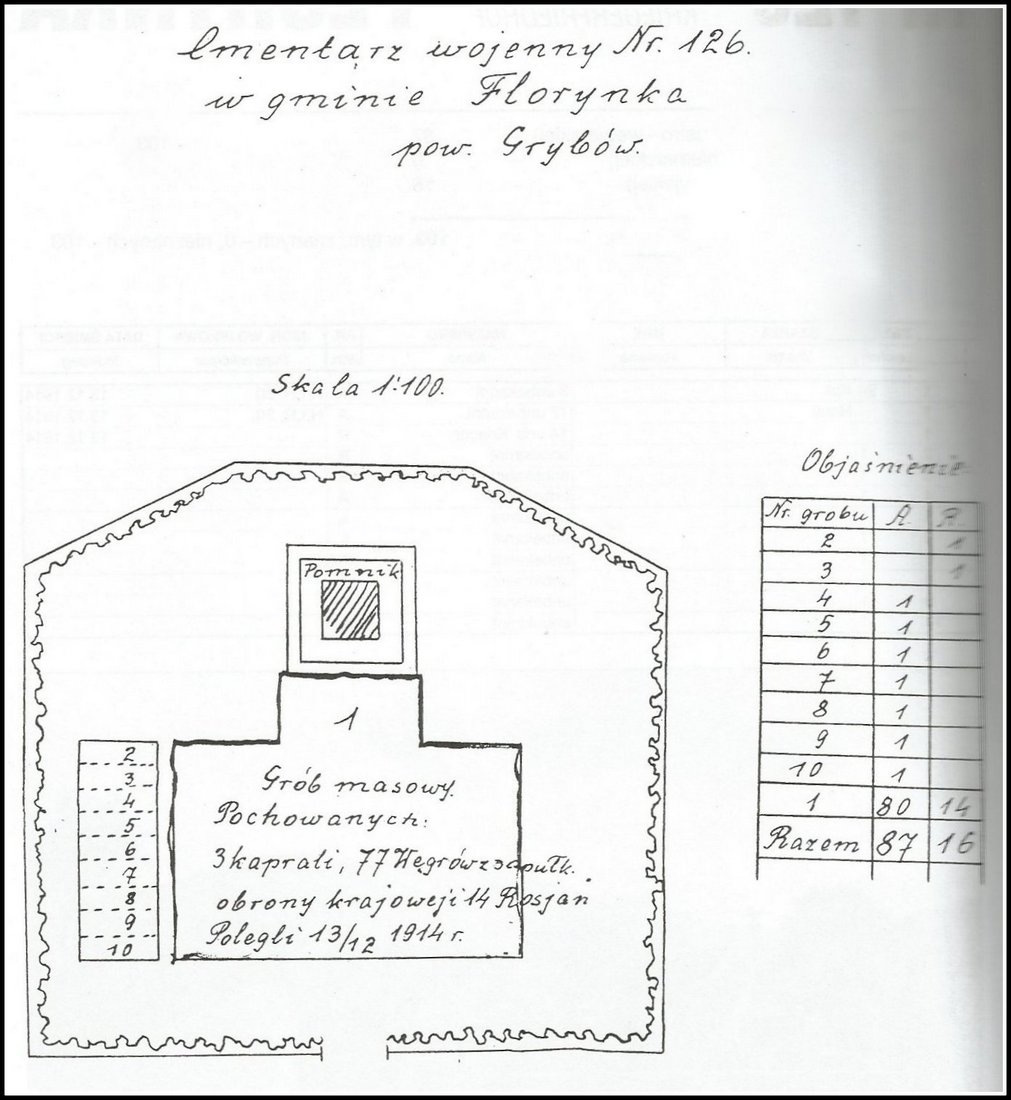 Cmentarz wojenny Nr. 126.
w gminie Florynka
pow. Grybów.
Skala 1:100.
Objaśnienie
Nr. grobu A. R.
2 1
3 1
4 1
5 1
6 1
7 1
8 1
9 1
10 1
1 80 14
Razem 87 16
Pomnik
1
Grób masowy.
Pochowanych:
3 kaprali, 77 Węgrów z 3 pułk.
obrony krajowej i 14 Rosjan
Polegli 13/12 1914 r.
2
3
4
5
6
7
8
9
10